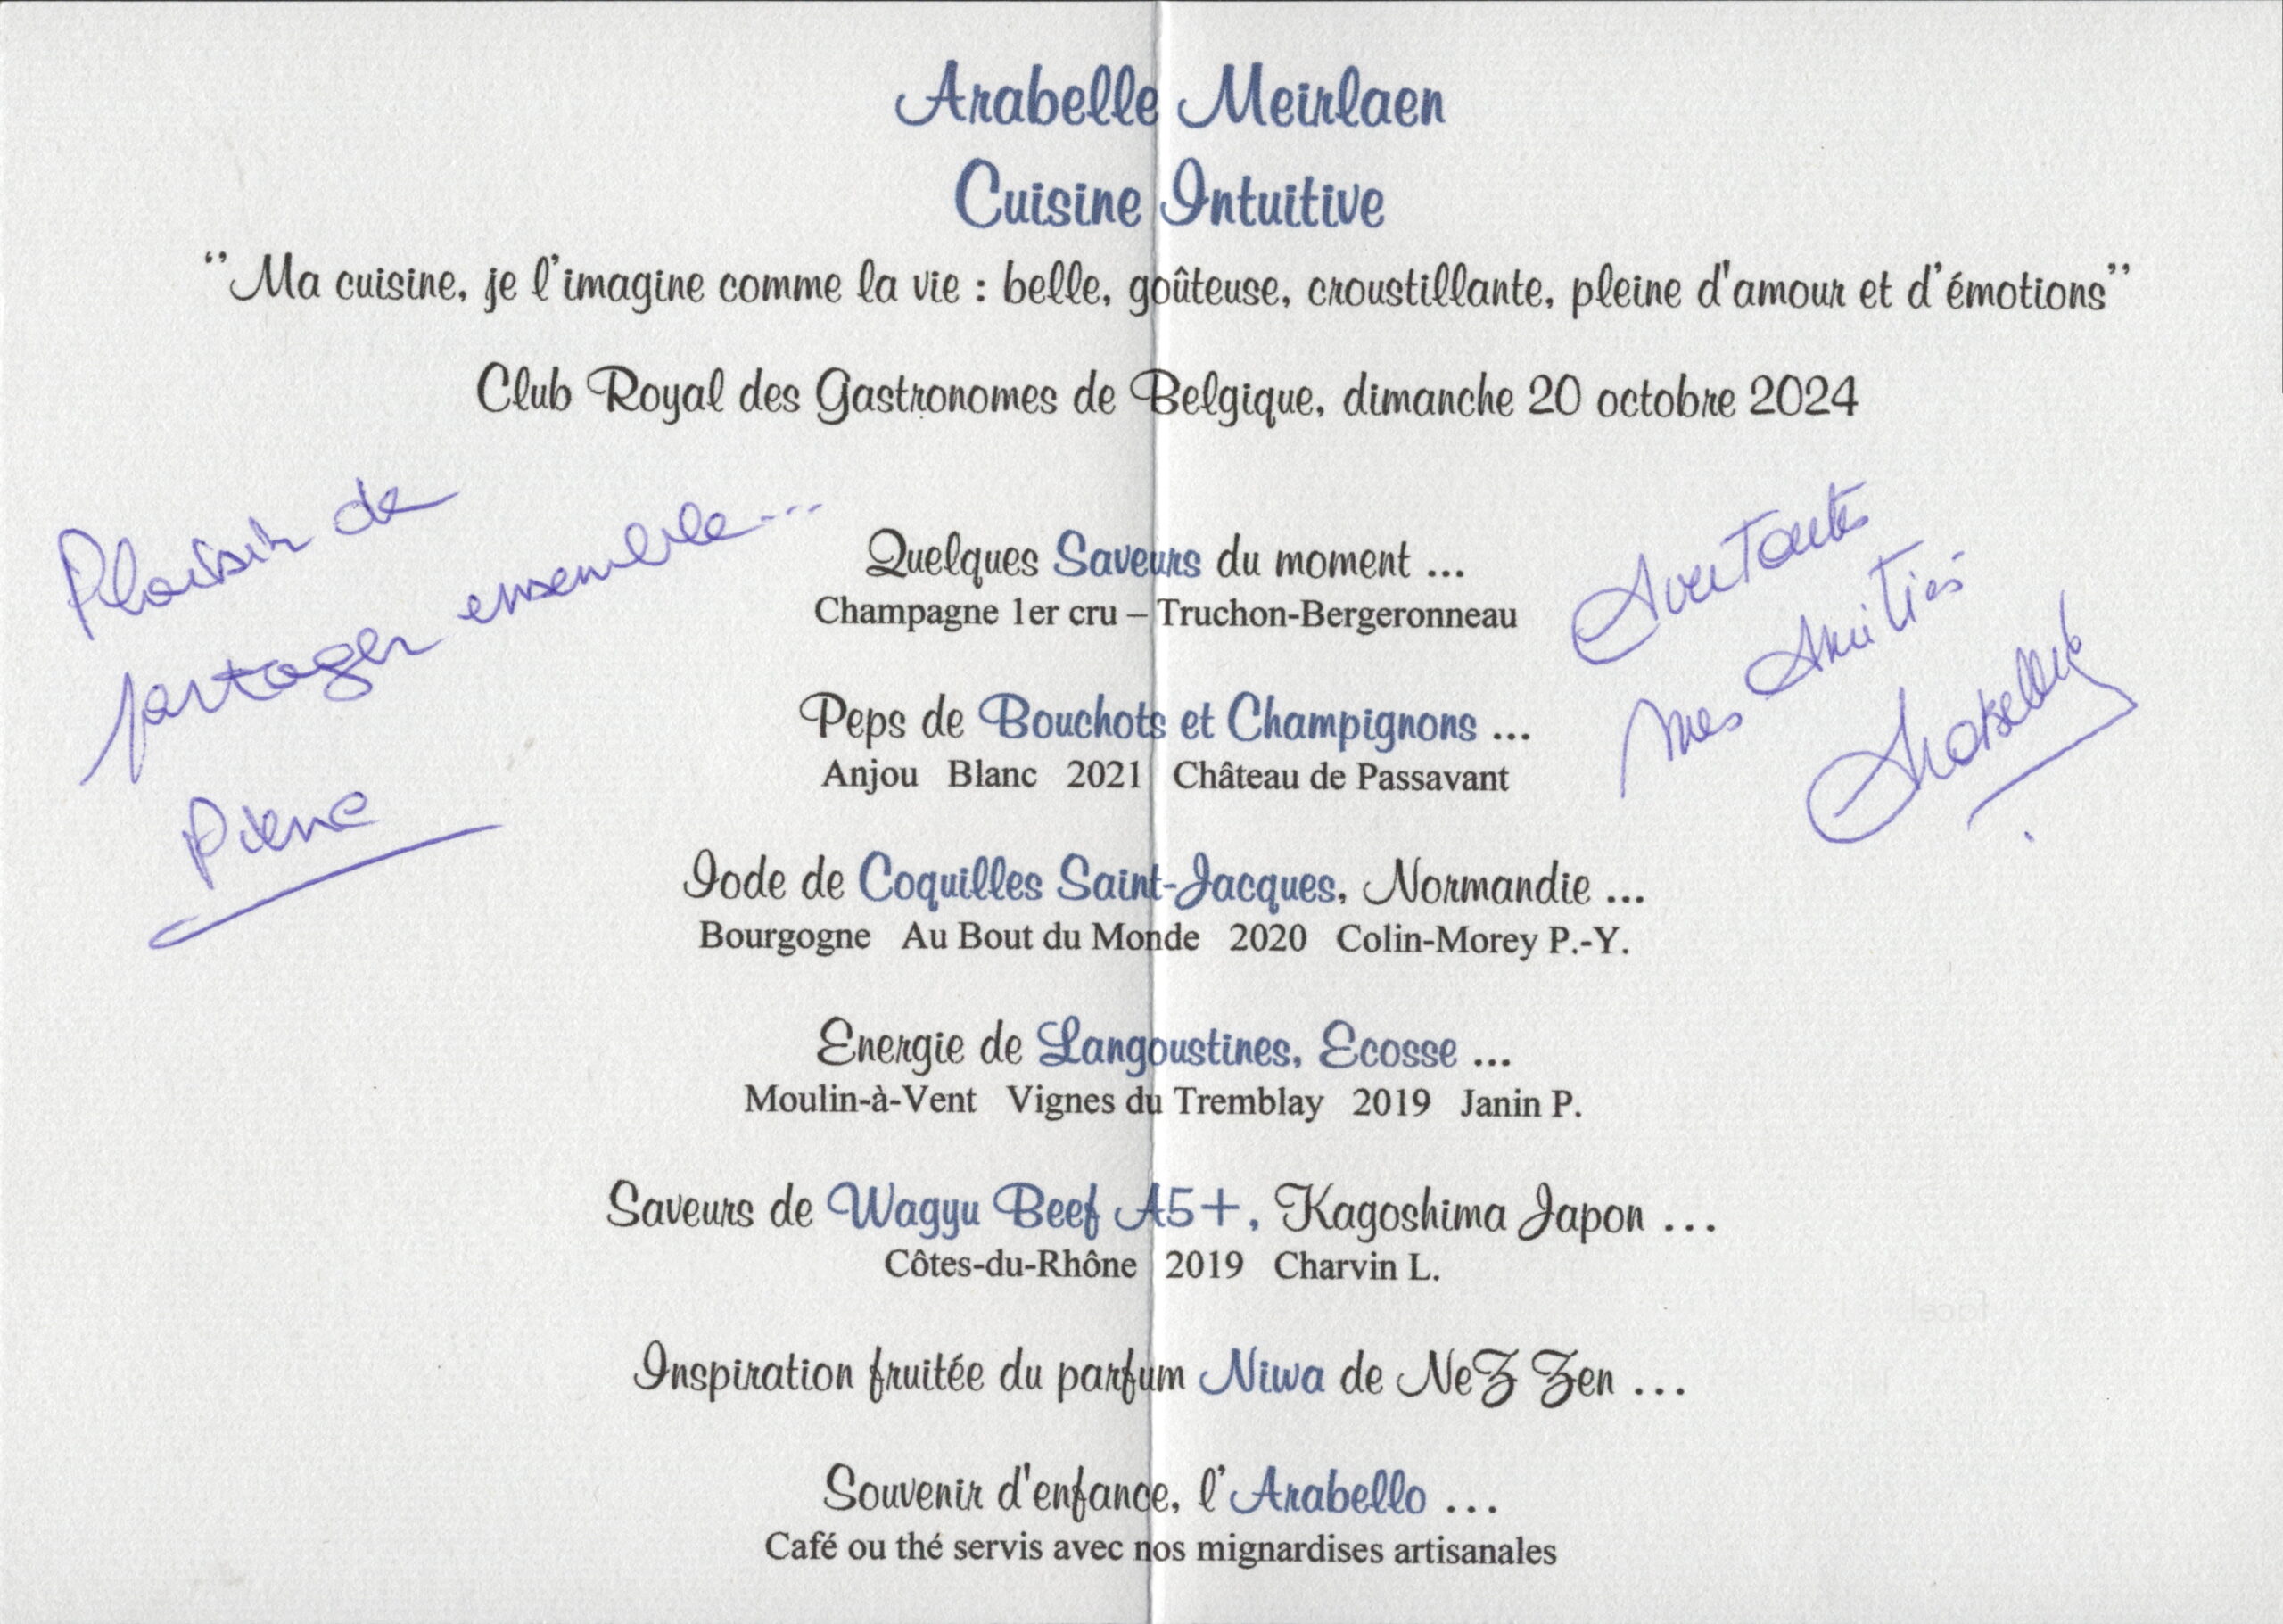 Arabelle Meirlaen
Cuisine Intuitive
‘’Ma cuisine, je l’imagine comme la vie : belle, goûteuse, croustillante, pleine d'amour et d’émotions’’
Club Royal des Gastronomes de Belgique, dimanche 20 octobre 2024
Plaisir de
partager ensemble...
Pierre
Quelques Saveurs du moment ...
Champagne 1er cru – Truchon-Bergeronneau
Peps de Bouchots et Champignons ...
Anjou Blanc 2021 Château de Passavant
Iode de Coquilles Saint-Jacques, Normandie ...
Bourgogne Au Bout du Monde 2020 Colin-Morey P.-Y.
Energie de Langoustines, Ecosse ...
Moulin-à-Vent Vignes du Tremblay 2019 Janin P.
Saveurs de Wagyu Beef A5+, Kagoshima Japon ...
Côtes-du-Rhône 2019 Charvin L.
Inspiration fruitée du parfum Niwa de NeZ Zen ...
Souvenir d'enfance, l’Arabello ...
Café ou thé servis avec nos mignardises artisanales
Avec Toutes
mes Amitiés
Arabelle